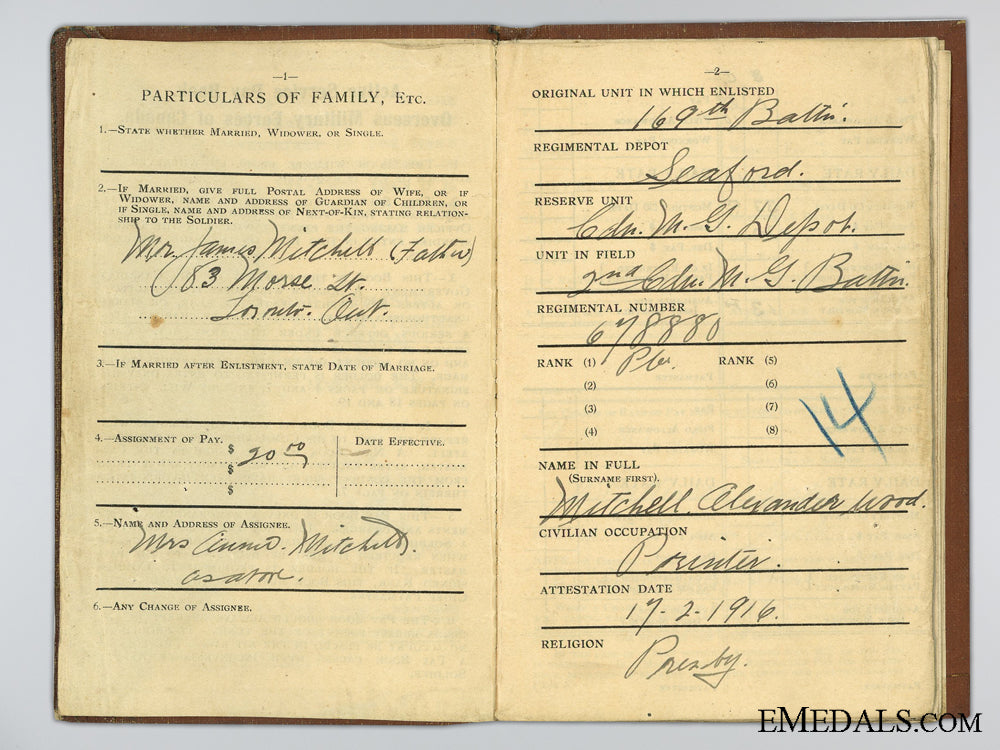 —1—
PARTICULARS OF FAMILY, Etc.
1.—State whether Married, Widower, or Single.
2.—If Married, give full Postal Address of Wife, or if
Widower, name and address of Guardian of Children, or
if Single, name and address of Next-of-Kin, stating relation-
ship to the Soldier.
Mr. James Mitchell (Father)
83 Morse St.
Toronto. Ont.
3.—If Married after Enlistment, state Date of Marriage.
4.—Assignment of Pay. Date Effective.
$ 20 00
$
$
5.—Name and Address of Assignee.
Mrs Annie. Mitchell.
as above.
6.—Any Change of Assignee.
—2—
ORIGINAL UNIT IN WHICH ENLISTED
169th Battn.
REGIMENTAL DEPOT
Seaford.
RESERVE UNIT
Cdn. M. G. Depot.
UNIT IN FIELD
2nd Cdn. M. G. Battn.
REGIMENTAL NUMBER
678880
RANK (1) Pte. RANK (5)
(2) (6)
(3) (7)
(4) (8)
14
NAME IN FULL
(Surname first).
Mitchell. Alexander Wood.
CIVILIAN OCCUPATION
Printer.
ATTESTATION DATE
17-2-1916.
RELIGION
Presby.
EMEDALS.COM